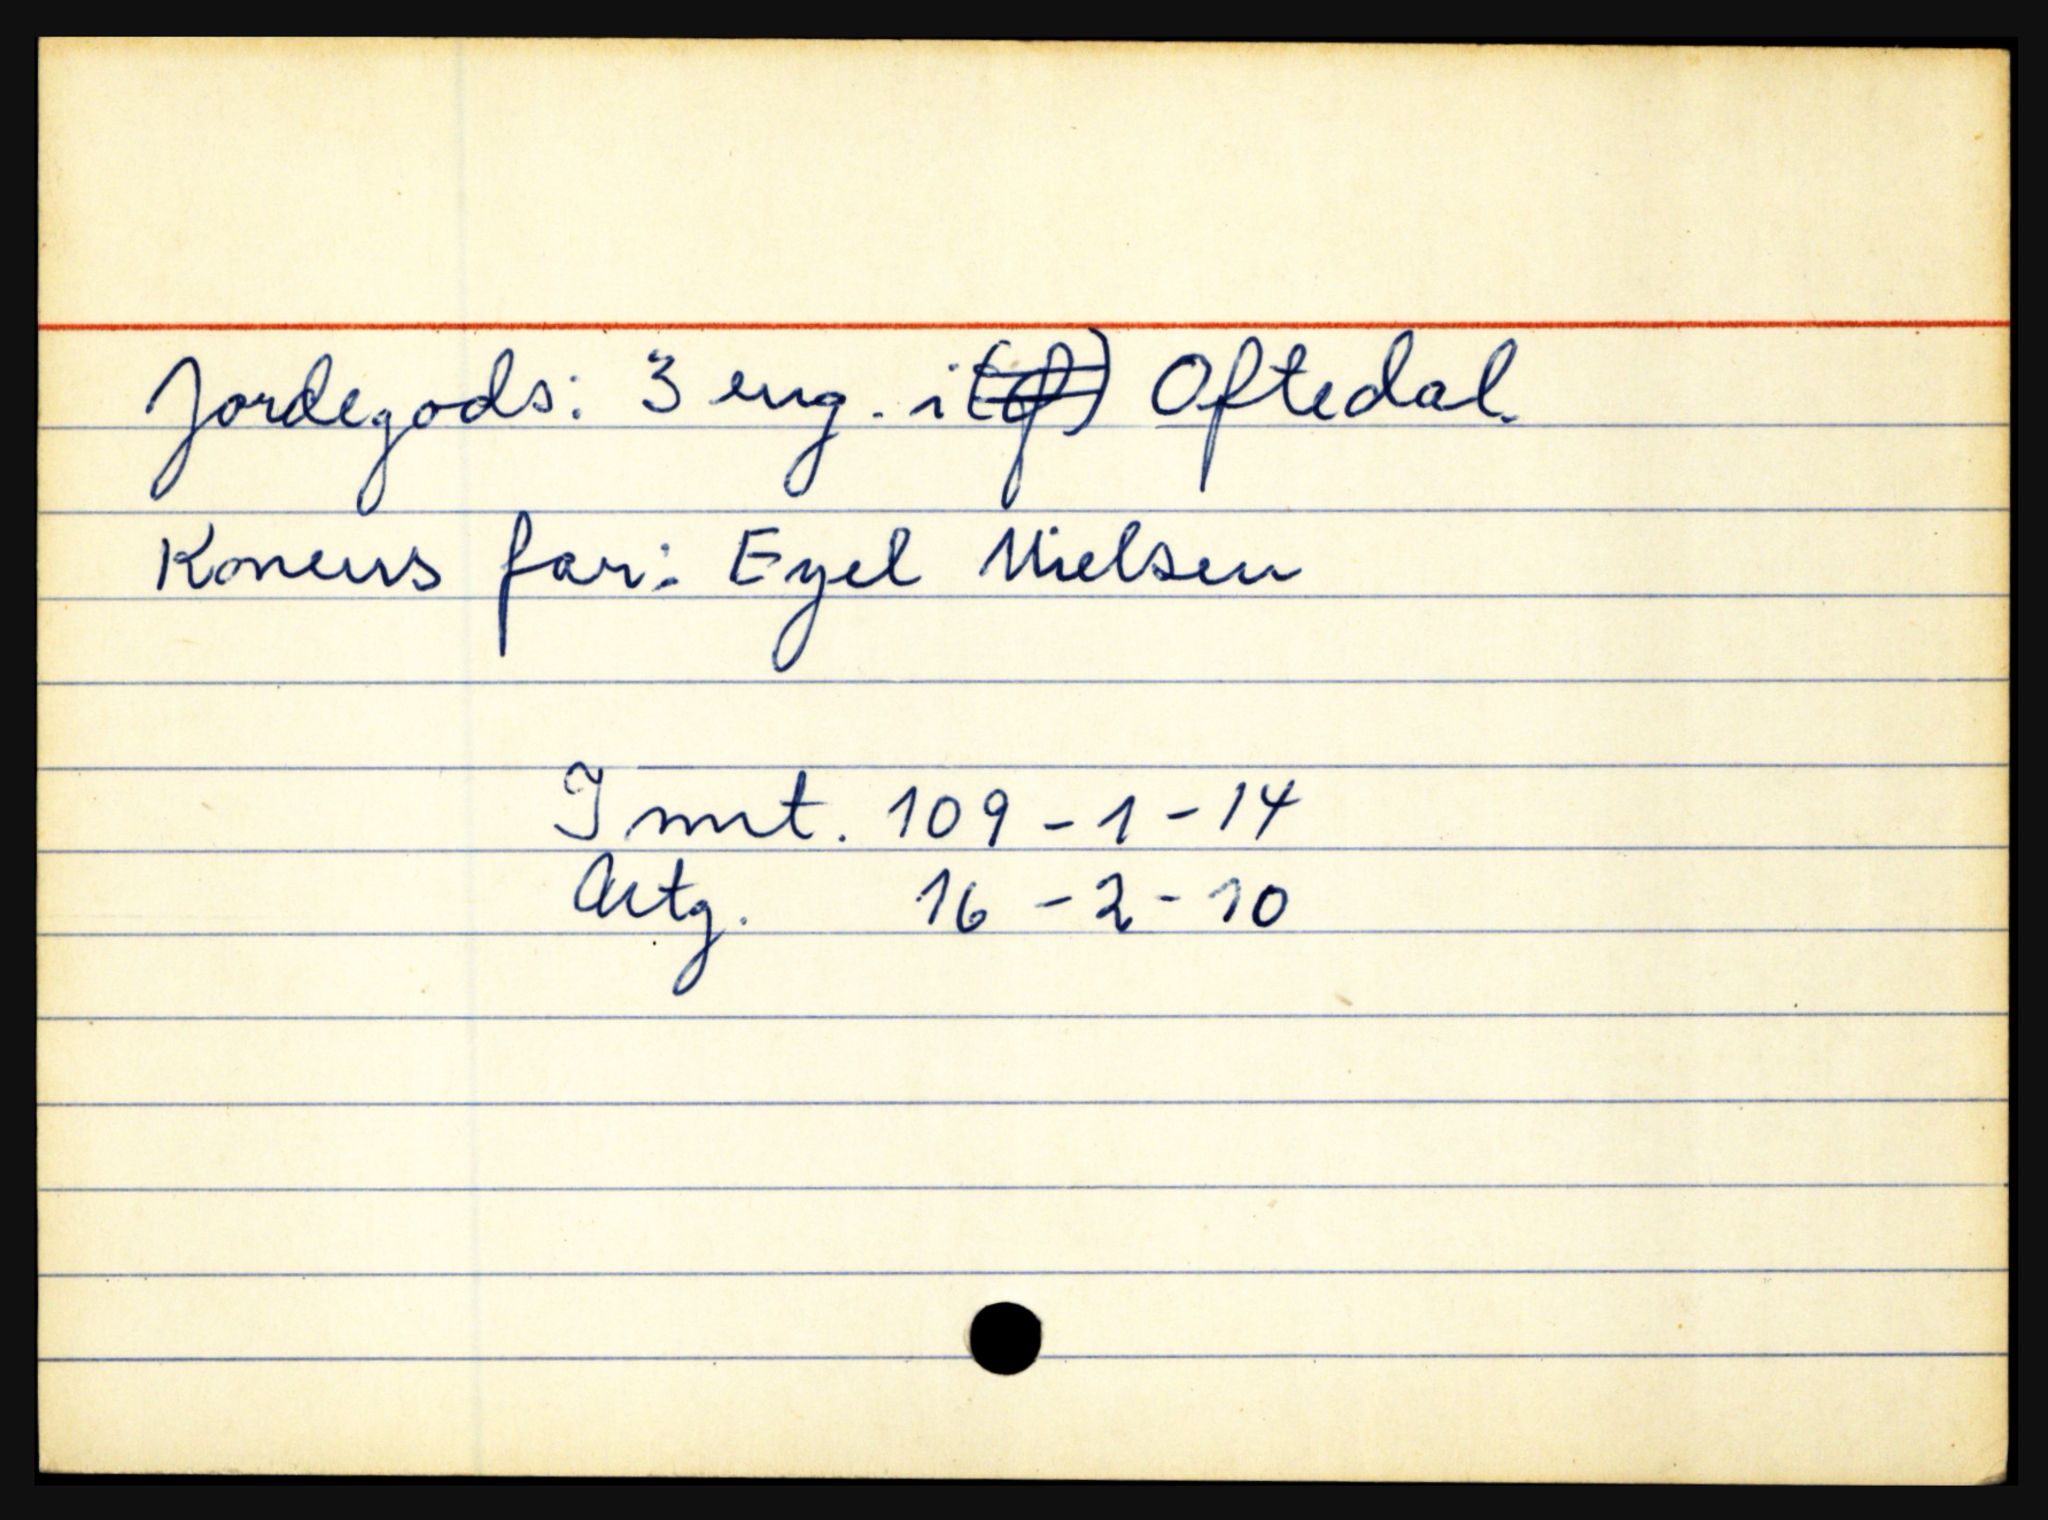 Jordegods: 3 eng. i Oftedal.
Konens far: Eyel Nielsen
I mt. 109 - 1 - 14
Avtg. 16 - 2 - 10